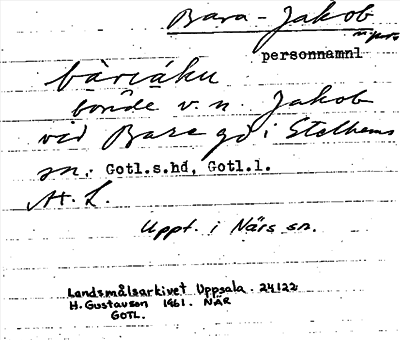 Bara-Jakob
personnamn
bàrⱥáku
bonde v. n. Jakob
vid Bare gd i Stelhems
sn. Gotl.s.hd, Gotl.l.
H. L.
Uppt. i Närs sn.
Landsmålsarkivet Uppsala . 24122
H. Gustavson 1961. NÄR
GOTL.